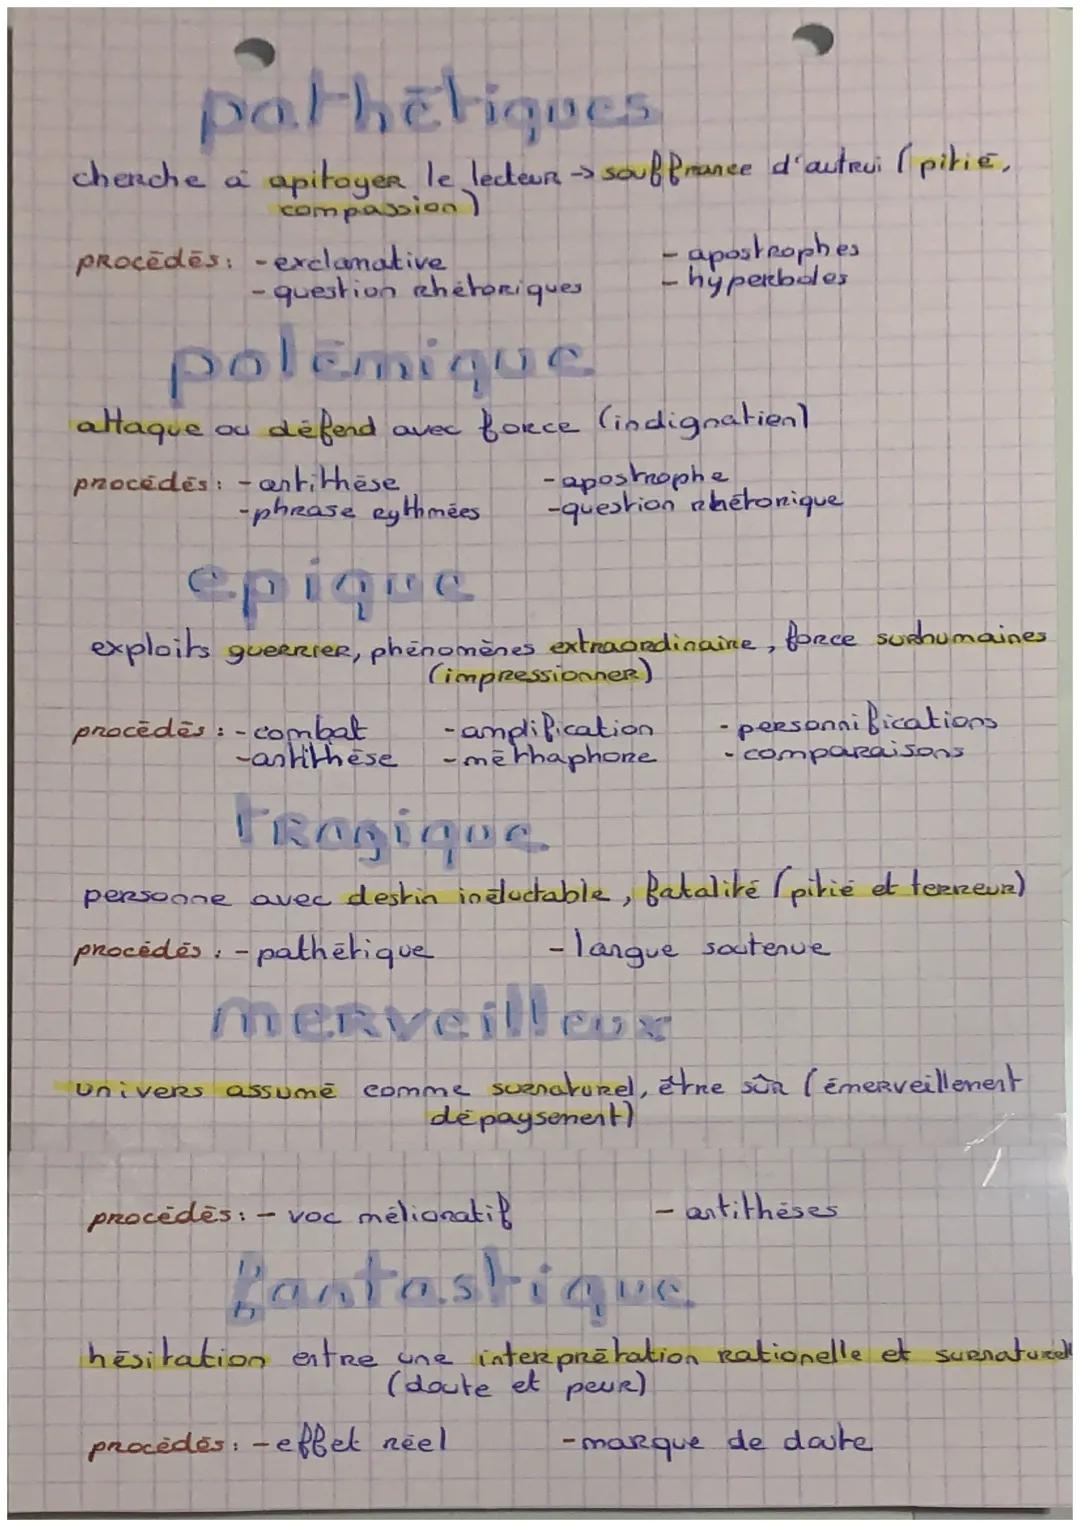 pathétiques
cherche à apitoyer le lecteur -> souffrance d'autrui (pitié,
compassion)
procédés: - exclamative - apostrophes
- question rhétoriques - hyperboles
polémique
attaque ou défend avec force (indignation)
procédés: - antithèse - apostrophe
- phrase rythmées - question rhétorique
epique
exploits guerrier, phénomènes extraordinaire, force surhumaines
(impressionner)
procédés: - combat - amplification - personnifications
- antithèse - méthaphore - comparaisons
tragique
personne avec destin inéluctable, fatalité (pitié et terreur)
procédés: - pathétique - langue soutenue
merveilleux
univers assumé comme surnaturel, être sûr (émerveillement
dépaysement)
procédés: - voc mélioratif - antithèses
fantastique
hésitation entre une interprétation rationelle et surnaturel
(doute et peur)
procédés: - effet réel - marque de doute